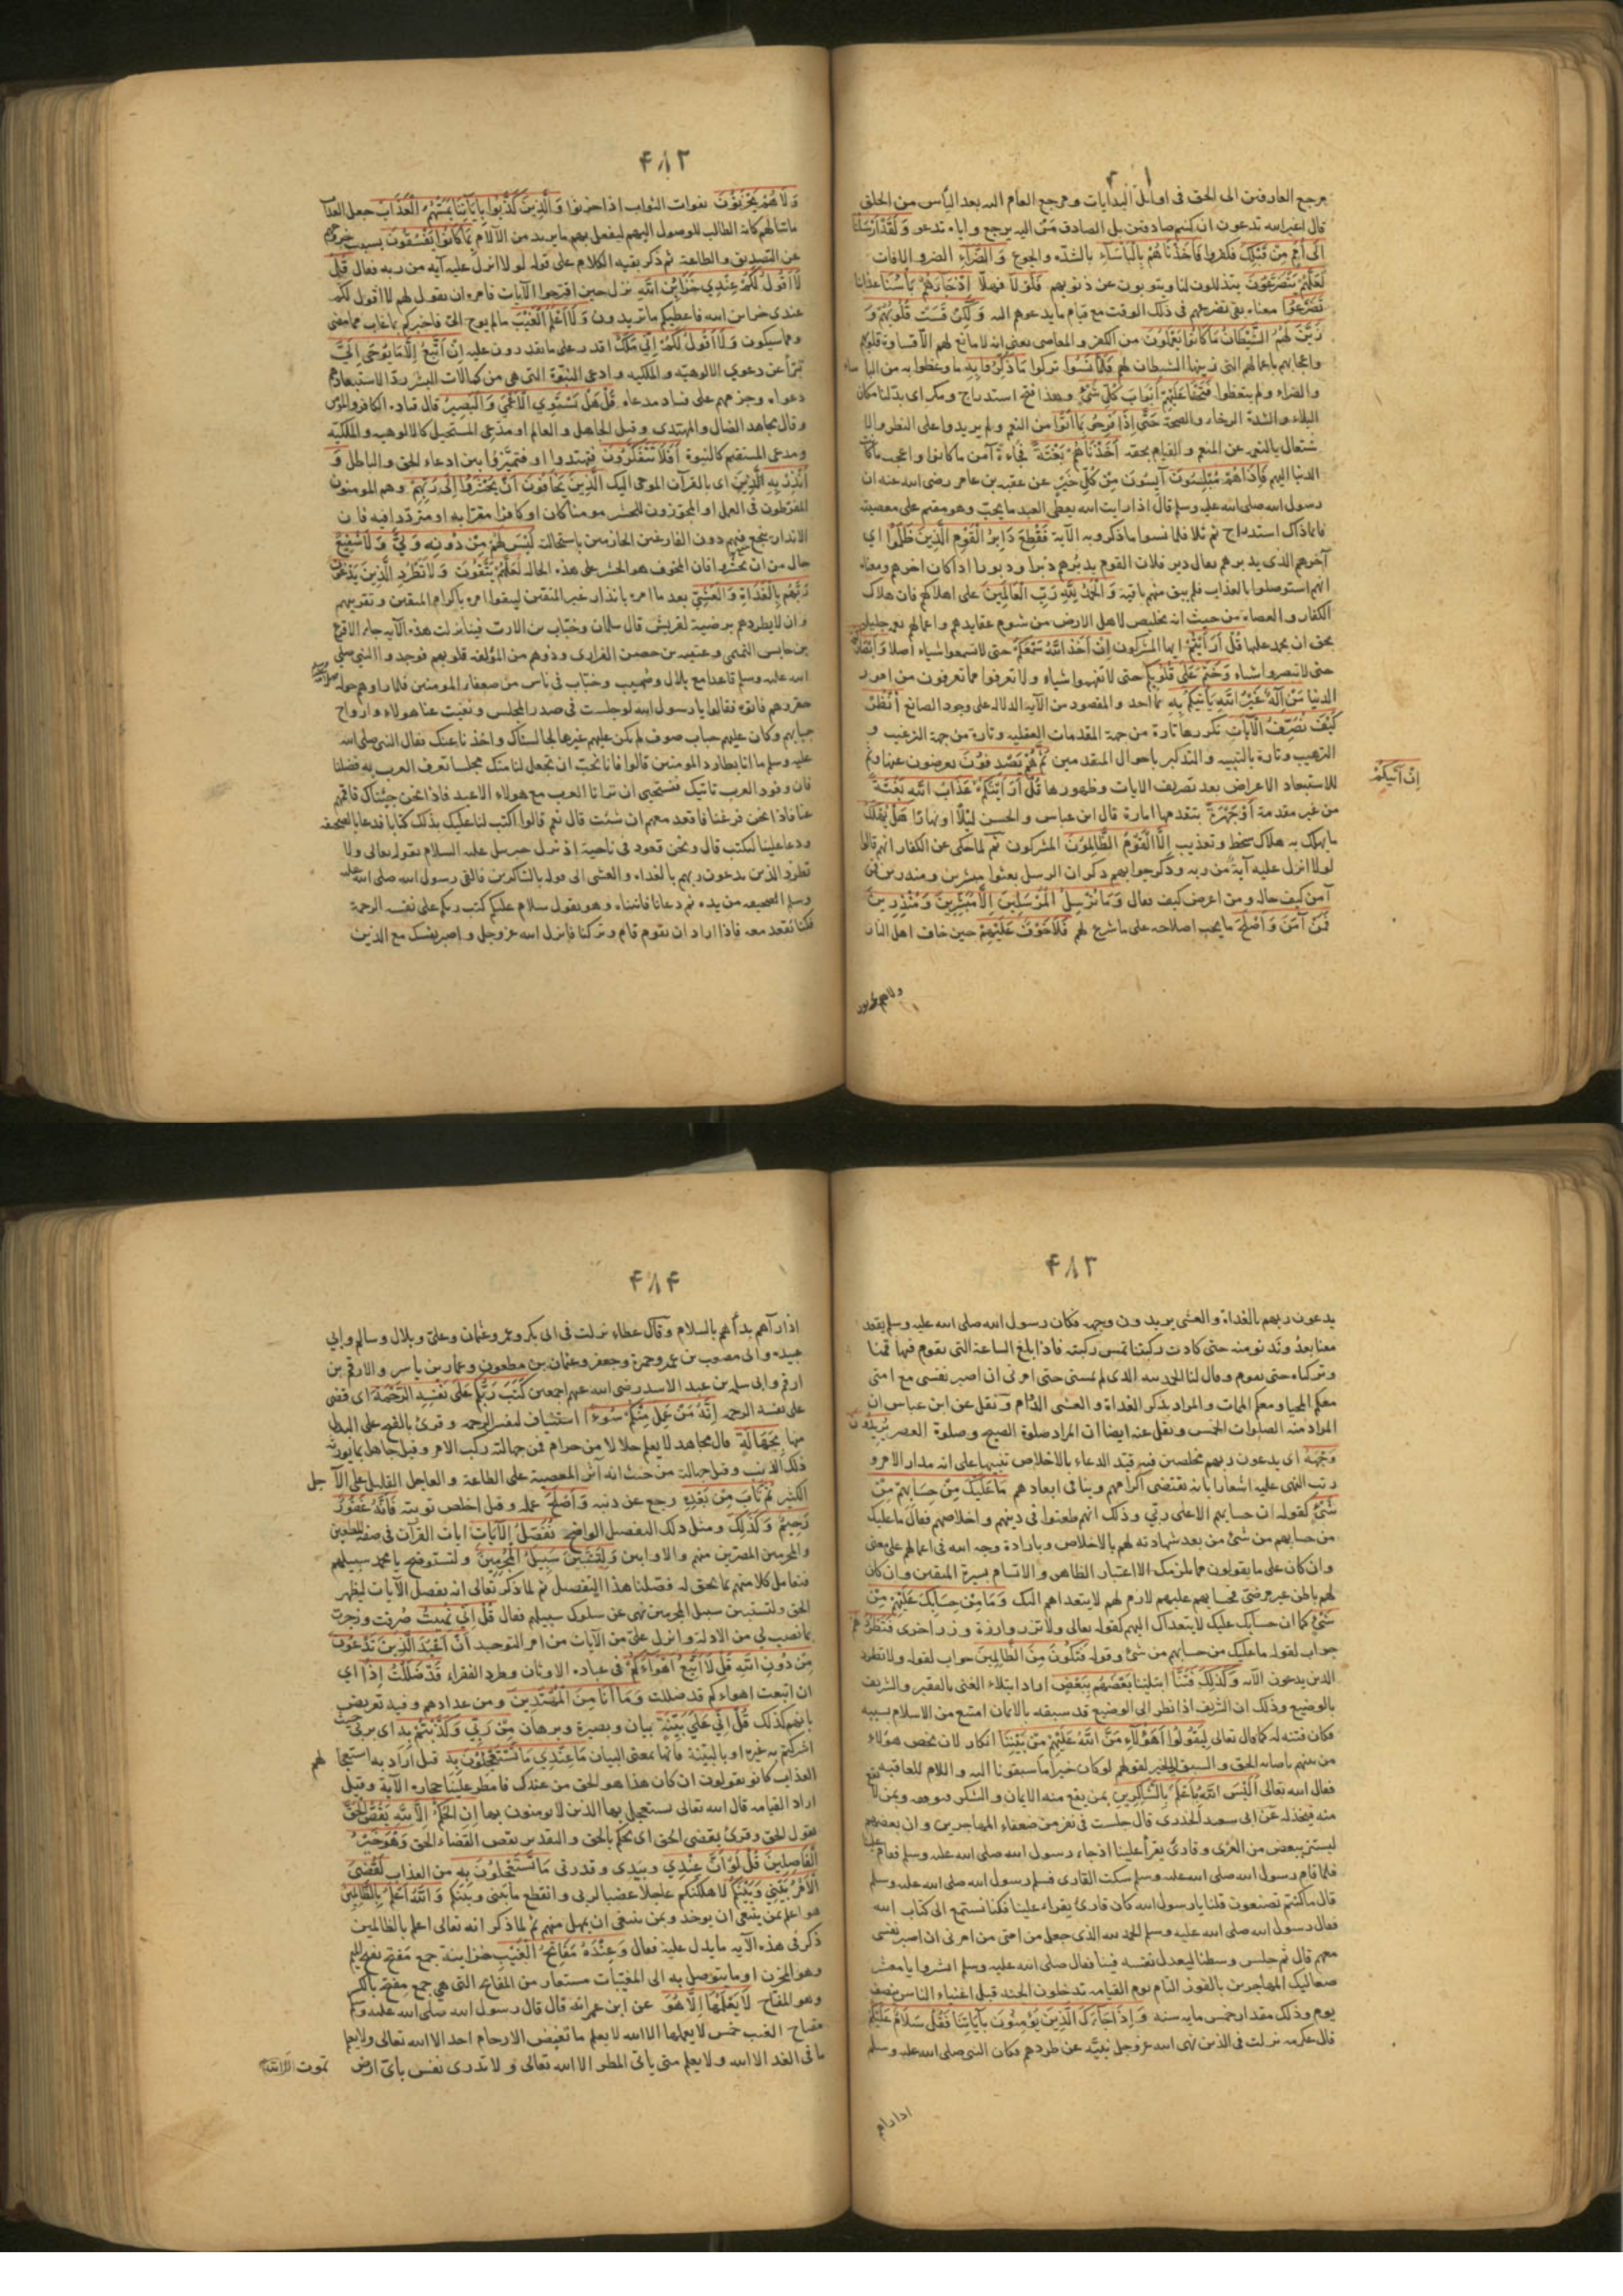 مرجع العارفين الى الحق فى اوايل البدايات ومرجع العام اليه بعد اليأس من الخلق
قال اغير الله تدعون ان كنتم صادقين بل الصادق مَن اليه يرجع واياه تدعو وَلَقَدْ اَرْسَلْنَا
اِلَى اُمَمٍ مِنْ قَبْلِكَ فكفروا فَاَخَذْنَاهُمْ بِالْبَأْسَآءِ بالشدّه والجوع وَالضَّرَّآءِ الضر والافات
لَعَلَّهُمْ يَتَضَرَّعُوْنَ يتذللون لنا ويتوبون عن ذنوبهم فَلَوْلَا فهلّا اِذْجَآءَهُمْ بَأْسُنَا عذابنا
تَضَرَّعُوْا معناه نفى تضرعهم فى ذلك الوقت مع قيام ما يدعوهم اليه وَلَكِنْ قَسَتْ قُلُوْبُهُمْ وَ
زَيَّنَ لَهُمُ الشَّيْطَانُ مَا كَانُوْا يَعْمَلُوْنَ من الكفر والمعاصى يعنى انه لا مانع لهم الا قساوة قلوبهم
واعجابهم باعمالهم التى زينها الشيطان لهم فَلَمَّا نَسُوْا تركوا مَا ذُكِّرُوْا بِهِ ما وعظوا به من البأساء
والضراء ولم يتعظوا فَتَحْنَا عَلَيْهِمْ اَبْوَابَ كُلِّ شَىْءٍ وهذا فتح استدراج ومكر اى بدّلنا مكان
البلاء والشدة الرخاء والصحة حَتَّى اِذَا فَرِحُوْا بِمَا اُوْتُوْا من النعم ولم يزيدوا على النظر والا
شتغال بالنعم عن المنعم والقيام بحقه اَخَذْنَاهُمْ بَغْتَةً فجاءةً آمن ما كانوا واعجب ما كانت
الدنيا اليهم فَاِذَا هُمْ مُبْلِسُوْنَ آيسون من كل خير عن عقبه بن عامر رضى الله عنه ان
رسول الله صلى الله عليه وسلم قال اذا رايت الله يعطى العبد ما يحب وهو مقيم على معصيته
فانما ذاك استدراج ثم تلا فلما نسوا ما ذكروا به الآية فَقُطِعَ دَابِرُ الْقَوْمِ الَّذِيْنَ ظَلَمُوْا اى
آخرهم الذى يدبرهم يقال دبر فلان القوم يدبُرهم دَبْرا ودبورا اذا كان اخرهم ومعناه
انهم استوصلوا بالعذاب فلم يبق منهم باقية وَالْحَمْدُ لِلّٰهِ رَبِّ الْعَالَمِيْنَ على اهلاكهم فان هلاك
الكفار والعصاه من حيث انه تخليص لاهل الارض من شوم عقايدهم واعمالهم نعم جليلة
يحق ان يحمد عليها قُلْ اَرَاَيْتُمْ ايها المشركون اِنْ اَخَذَ اللّٰهُ سَمْعَكُمْ حتى لا تسمعوا شياء اصلا وَاَبْصَارَكُمْ
حتى لا تبصروا شياء وَخَتَمَ عَلَى قُلُوْبِكُمْ حتى لا تفهموا شياء ولا تعرفوا مما تعرفون من امور
الدنيا مَنْ اِلٰهٌ غَيْرُ اللّٰهِ يَاْتِيْكُمْ بِهِ مما اخذ والمقصود من الآية الدلاله على وجود الصانع اُنْظُرْ
كَيْفَ نُصَرِّفُ الْآيَاتِ نكررها تارة من جهة المقدمات العقليه وتارة من جهة الترغيب و
الترهيب وتارة بالتنبيه والتذكير باحوال المتقدمين ثُمَّ هُمْ يَصْدِفُوْنَ يعرضون عنها وثم
للاستبعاد الاعراض بعد تصريف الايات وظهورها قُلْ اَرَاَيْتَكُمْ عَذَابُ اللّٰهِ بَغْتَةً
اِنْ اَتَيكُمْ
من غير مقدمة اَوْ جَهْرَةً بتقدمها امارة قال ابن عباس والحسن ليلاً او نهارا هَلْ يُهْلَكُ
ما يهلك به هلاك سخط وتعذيب اِلَّا الْقَوْمُ الظَّالِمُوْنَ المشركون ثم لما حكى عن الكفار انهم قالوا
لولا انزل عليه آية من ربه وذكر جوابهم ذكر ان الرسل بعثوا مبشرين ومنذرين فمن
آمن كيف حاله ومن اعرض كيف فعال وَمَا نُرْسِلُ الْمُرْسَلِيْنَ اِلَّا مُبَشِّرِيْنَ وَمُنْذِرِيْنَ
فَمَنْ آمَنَ وَاَصْلَحَ ما يجب اصلاحه على ما شرع لهم فَلَا خَوْفٌ عَلَيْهِمْ حين خاف اهل النار
ولاهم يحزنون
۴۸۲
وَلَا هُمْ يَحْزَنُوْنَ بفوات الثواب اذا حزنوا وَالَّذِيْنَ كَذَّبُوْا بِآيَاتِنَا يَمَسُّهُمُ الْعَذَابُ جعل العذاب
ماسّا لهم كانه الطالب للوصول اليهم ليفعل بهم ما يريد من الالام بِمَا كَانُوْا يَفْسُقُوْنَ بسبب خروجهم
عن التصديق والطاعة ثم ذكر بقيه الكلام على قوله لولا انزل عليه آيه من ربه فعال قُلْ
لَا اَقُوْلُ لَكُمْ عِنْدِيْ خَزَائِنُ اللّٰهِ نزل حين اقترحوا الآيات فامره ان يقول لهم لا اقول لكم
عندى خزاين الله فاعطيكم ما تريدون وَلَا اَعْلَمُ الْغَيْبَ مالم يوح الىّ فاخبركم بما غاب مما مضى
ومما سيكون وَلَا اَقُوْلُ لَكُمْ اِنِّيْ مَلَكٌ اقدر على ما يقدرون عليه اِنْ اَتَّبِعُ اِلَّا مَا يُوْحَى اِلَيَّ
تبرأ عن دعوى الالوهيّه والملكيه وادعى النبوّة التى هى من كمالات البشر ردا لاستبعادهم
دعواه وجزمهم على فساد مدعاه قُلْ هَلْ يَسْتَوِي الْاَعْمَى وَالْبَصِيْرُ قال قتاده الكافر والمؤمن
وقال مجاهد الضال والمهتدى وقيل الجاهل والعالم او مدعى المستحيل كالالوهيه والملكيه
ومدعى المستقيم كالنبوة اَفَلَا تَتَفَكَّرُوْنَ فتهتدوا او فتميّزوا بين ادعاء الحق والباطل وَ
اَنْذِرْ بِهِ الَّذِيْنَ اى بالقرآن الموحى اليك الَّذِيْنَ يَخَافُوْنَ اَنْ يُحْشَرُوْا اِلَى رَبِّهِمْ وهم المومنون
المفرّطون فى العمل او المجوّزون للحشر مومنا كان او كافرا مقرّا به او متردّدا فيه فان
الانذار ينجع فيهم دون الفارغين الجازمين باستحالته لَيْسَ لَهُمْ مِنْ دُوْنِهِ وَلِيٌّ وَلَا شَفِيْعٌ
حال من ان يحشروا فان المخوف هو الحشر على هذه الحاله لَعَلَّهُمْ يَتَّقُوْنَ وَلَا تَطْرُدِ الَّذِيْنَ يَدْعُوْنَ
رَبَّهُمْ بِالْغَدَاةِ وَالْعَشِيِّ بعد ما امره بانذار غير المتقين ليتقوا امره باكرام المتقين وتقريبهم
وان لا يطردهم ترضية لقريش قال سلمان وخبّاب بن الارت فينا نزلت هذه الآيه جاء الاقرع
بن حابس التميمى وعتيبه بن حصن الفزارى وذووهم من المؤلفه قلوبهم فوجدوا النبى صلى
الله عليه وسلم قاعدا مع بلال وصُهيب وخبّاب فى ناس من ضعفاء المومنين فلما راوهم حوله
حقروهم فاتوه فقالوا يا رسول الله لو جلست فى صدر المجلس ونفيت عنا هولاء وارواح
جبابهم وكان عليهم جباب صوف لم يكن عليهم غيرها لجالسناك واخذنا عنك فقال النبى صلى الله
عليه وسلم ما انا بطارد المومنين قالوا فانا نحب ان تجعل لنا منك مجلسا تعرف العرب به فضلنا
فان وفود العرب تاتيك فنستحيى ان ترانا العرب مع هولاء الاعبد فاذا نحن جئناك فاقمهم
عنا فاذا نحن فرغنا فاقعد معهم ان شئت قال نعم قالوا اكتب لنا عليك بذلك كتابا فدعا بالصحيفه
ودعا عليّا ليكتب قال ونحن قعود فى ناحية اذ نزل جبريل عليه السلام بقوله تعالى ولا
تطرد الذين يدعون ربهم بالغداه والعشى الى قوله بالشاكرين فالقى رسول الله صلى الله عليه
وسلم الصحيفه من يده ثم دعانا فاتيناه وهو يقول سلام عليكم كتب ربكم على نفسه الرحمة
فكنا نقعد معه فاذا اراد ان يقوم قام وتركنا فانزل الله عز وجل واصبر نفسك مع الذين
۴۸۳
يدعون ربهم بالغداة والعشى يريدون وجهه فكان رسول الله صلى الله عليه وسلم يقعد
معنا بعدُ وندنو منه حتى كادت ركبتنا تمس ركبته فاذا بلغ الساعة التى يقوم فيها قمنا
وتركناه حتى يقوم وقال لنا الحمد لله الذى لم يمتنى حتى امرنى ان اصبر نفسى مع امتى
معكم المحيا ومعكم الممات والمراد بذكر الغداة والعشى الدّوام ونقل عن ابن عباس ان
المراد منه الصلوات الخمس ونقل عنه ايضا ان المراد صلوة الصبح وصلوة العصر يُرِيْدُوْنَ
وَجْهَهُ اى يدعون ربهم مخلصين فيه قيّد الدعاء بالاخلاص تنبيها على انه مدار الامر و
رتب النهى عليه اشعارا بانه يقتضى اكرامهم وينافى ابعادهم مَا عَلَيْكَ مِنْ حِسَابِهِمْ مِنْ
شَىْءٍ كقوله ان حسابهم الا على ربى وذلك انهم طعنوا فى دينهم واخلاصهم فقال ما عليك
من حسابهم من شئ من بعد شهادته لهم بالاخلاص وبارادة وجه الله فى اعمالهم على معنى
وان كان على ما يقولون فما يلزمك الا اعتبار الظاهر والاتسام بسيرة المتقين وان كان
لهم باطن غير مرضىّ فحسابهم عليهم لازم لهم لا يتعداهم اليك وَمَا مِنْ حِسَابِكَ عَلَيْهِمْ مِنْ
شَىْءٍ كما ان حسابك عليك لا يتعداك اليهم كقوله تعالى ولا تزر وازرة وزر اخرى فَتَطْرُدَهُمْ
جواب لقوله ما عليك من حسابهم من شئ وقوله فَتَكُوْنَ مِنَ الظَّالِمِيْنَ جواب لقوله ولا تطرد
الذين يدعون الآيه وَكَذَلِكَ فَتَنَّا ابتلينا بَعْضَهُمْ بِبَعْضٍ اراد ابتلاء الغنى بالفقير والشريف
بالوضيع وذلك ان الشريف اذا نظر الى الوضيع قد سبقه بالايمان امتنع من الاسلام بسببه
فكان فتنه له كما قال تعالى لِيَقُوْلُوْا اَهٰؤُلَآءِ مَنَّ اللّٰهُ عَلَيْهِمْ مِنْ بَيْنِنَا انكار لان يخص هؤلاء
من بينهم باصابه الحق والسبق الى الخير لقولهم لو كان خيرا ما سبقونا اليه واللام للعاقبه
فقال الله تعالى اَلَيْسَ اللّٰهُ بِاَعْلَمَ بِالشَّاكِرِيْنَ بمن يقع منه الايمان والشكر فيوفقه وبمن لا يقع
منه فيخذله عن ابى سعيد الخدرى قال جلست فى نفر من ضعفاء المهاجرين وان بعضهم
ليستتر ببعض من العُرى وقارئ يقرأ علينا اذ جاء رسول الله صلى الله عليه وسلم فقام علينا
فلما قام رسول الله صلى الله عليه وسلم سكت القارى فسلم رسول الله صلى الله عليه وسلم
قال ما كنتم تصنعون قلنا يا رسول الله كان قارئ يقراء علينا فكنا نستمع الى كتاب الله
فقال رسول الله صلى الله عليه وسلم الحمد لله الذى جعل من امتى من امرنى ان اصبر نفسى
معهم قال ثم جلس وسطنا ليعدل نفسه فينا فقال صلى الله عليه وسلم ابشروا يا معشر
صعاليك المهاجرين بالفوز التام يوم القيامه تدخلون الجنه قبل اغنياء الناس بنصف
يوم وذلك مقدار خمس مايه سنه وَاِذَا جَآءَكَ الَّذِيْنَ يُؤْمِنُوْنَ بِآيَاتِنَا فَقُلْ سَلَامٌ عَلَيْكُمْ
قال عكرمه نزلت فى الذين نهى الله عز وجل نبيّه عن طردهم فكان النبى صلى الله عليه وسلم
اذا رآهم
۴۸۴
اذا رآهم بدأهم بالسلام وقال عطاء نزلت فى ابى بكر وعمر وعثمان وعلىّ وبلال وسالم وابى
عبيده والى مصعب بن عمير وحمزة وجعفر وعثمان بن مظعون وعمار بن ياسر والارقم بن
ارقم وابى سلمه بن عبد الاسد رضى الله عنهم اجمعين كَتَبَ رَبُّكُمْ عَلَى نَفْسِهِ الرَّحْمَةَ اى قضى
على نفسه الرحمه اِنَّهُ مَنْ عَمِلَ مِنْكُمْ سُوْءًا استيناف لتفسير الرحمه وقرئ بالفتح على البدل
منها بِجَهَالَةٍ قال مجاهد لا يعلم حلالا من حرام فمن جهالته ركب الامر وقيل جاهل بما يورثه
ذلك الذنب وقيل جهالته من حيث انه آثر المعصية على الطاعة والعاجل القليل على الآجل
الكثير ثُمَّ تَابَ مِنْ بَعْدِهِ رجع عن ذنبه وَاَصْلَحَ عمله وقيل اخلص توبته فَاَنَّهُ غَفُوْرٌ
رَحِيْمٌ وَكَذَلِكَ ومثل ذلك التفصيل الواضح نُفَصِّلُ الْآيَاتِ ايات القرآن فى صفة المطيعين
والمجرمين المصرّين منهم والاوابين وَلِتَسْتَبِيْنَ سَبِيْلُ الْمُجْرِمِيْنَ ولتستوضح يا محمد سبيلهم
فتعامل كلا منهم بما يحق له فصّلنا هذا التفصيل ثم لما ذكر تعالى انه يفصل الآيات ليظهر
الحق ولتستبين سبيل المجرمين نهى عن سلوك سبيلهم فعال قُلْ اِنِّيْ نُهِيْتُ صُرفت وزجرت
بما نصب لى من الادلة وانزل علىّ من الآيات من امر التوحيد اَنْ اَعْبُدَ الَّذِيْنَ تَدْعُوْنَ
مِنْ دُوْنِ اللّٰهِ قُلْ لَا اَتَّبِعُ اَهْوَآءَكُمْ فى عباده الاوثان وطرد الفقراء قَدْ ضَلَلْتُ اِذًا اى
ان اتبعت اهواءكم قد ضللت وَمَا اَنَا مِنَ الْمُهْتَدِيْنَ ومن عدادهم وفيه تعريض
بانهم كذلك قُلْ اِنِّيْ عَلَى بَيِّنَةٍ بيان وبصيرة وبرهان مِنْ رَبِّيْ وَكَذَّبْتُمْ بِهِ اى بربى حيث
اشركتم به غيره او بالبيّنة فانها بمعنى البيان مَا عِنْدِيْ مَا تَسْتَعْجِلُوْنَ بِهِ قيل اراد به استعجالهم
العذاب كانو يقولون ان كان هذا هو الحق من عندك فامطر علينا حجاره الآية وقيل
اراد القيامه قال الله تعالى يستعجل بها الذين لا يومنون بها اِنِ الْحُكْمُ اِلَّا لِلّٰهِ يَقُصُّ الْحَقَّ
يقول الحق وقرئ يقضى الحق اى يحكم بالحق والتقدير يقضى القضاء الحق وَهُوَ خَيْرُ
الْفَاصِلِيْنَ قُلْ لَوْ اَنَّ عِنْدِيْ وبيدى وقدرتى مَا تَسْتَعْجِلُوْنَ بِهِ من العذاب لَقُضِيَ
الْاَمْرُ بَيْنِيْ وَبَيْنَكُمْ لاهلكتكم عاجلا غضبا لربى وانقطع ما بينى وبينكم وَاللّٰهُ اَعْلَمُ بِالظَّالِمِيْنَ
هو اعلم بمن ينبغى ان يوخذ وبمن ينبغى ان يمهل منهم ثم لما ذكر انه تعالى اعلم بالظالمين
ذكر فى هذه الآيه ما يدل عليه فعال وَعِنْدَهُ مَفَاتِحُ الْغَيْبِ خزاينه جمع مَفتح بفتح الميم
وهو المخزن او ما يتوصل به الى المغيّبات مستعار من المفاتح التى هى جمع مِفتح بالكسر
وهو المفتاح لَا يَعْلَمُهَا اِلَّا هُوَ عن ابن عمر انه قال قال رسول الله صلى الله عليه وسلم
مفتاح الغيب خمس لا يعلمها الا الله لا يعلم ما تغيض الارحام احد الا الله تعالى ولا يعلم
ما فى الغد الا الله ولا يعلم متى ياتى المطر الا الله تعالى ولا تدرى نفس باىّ ارض تموت الا الله